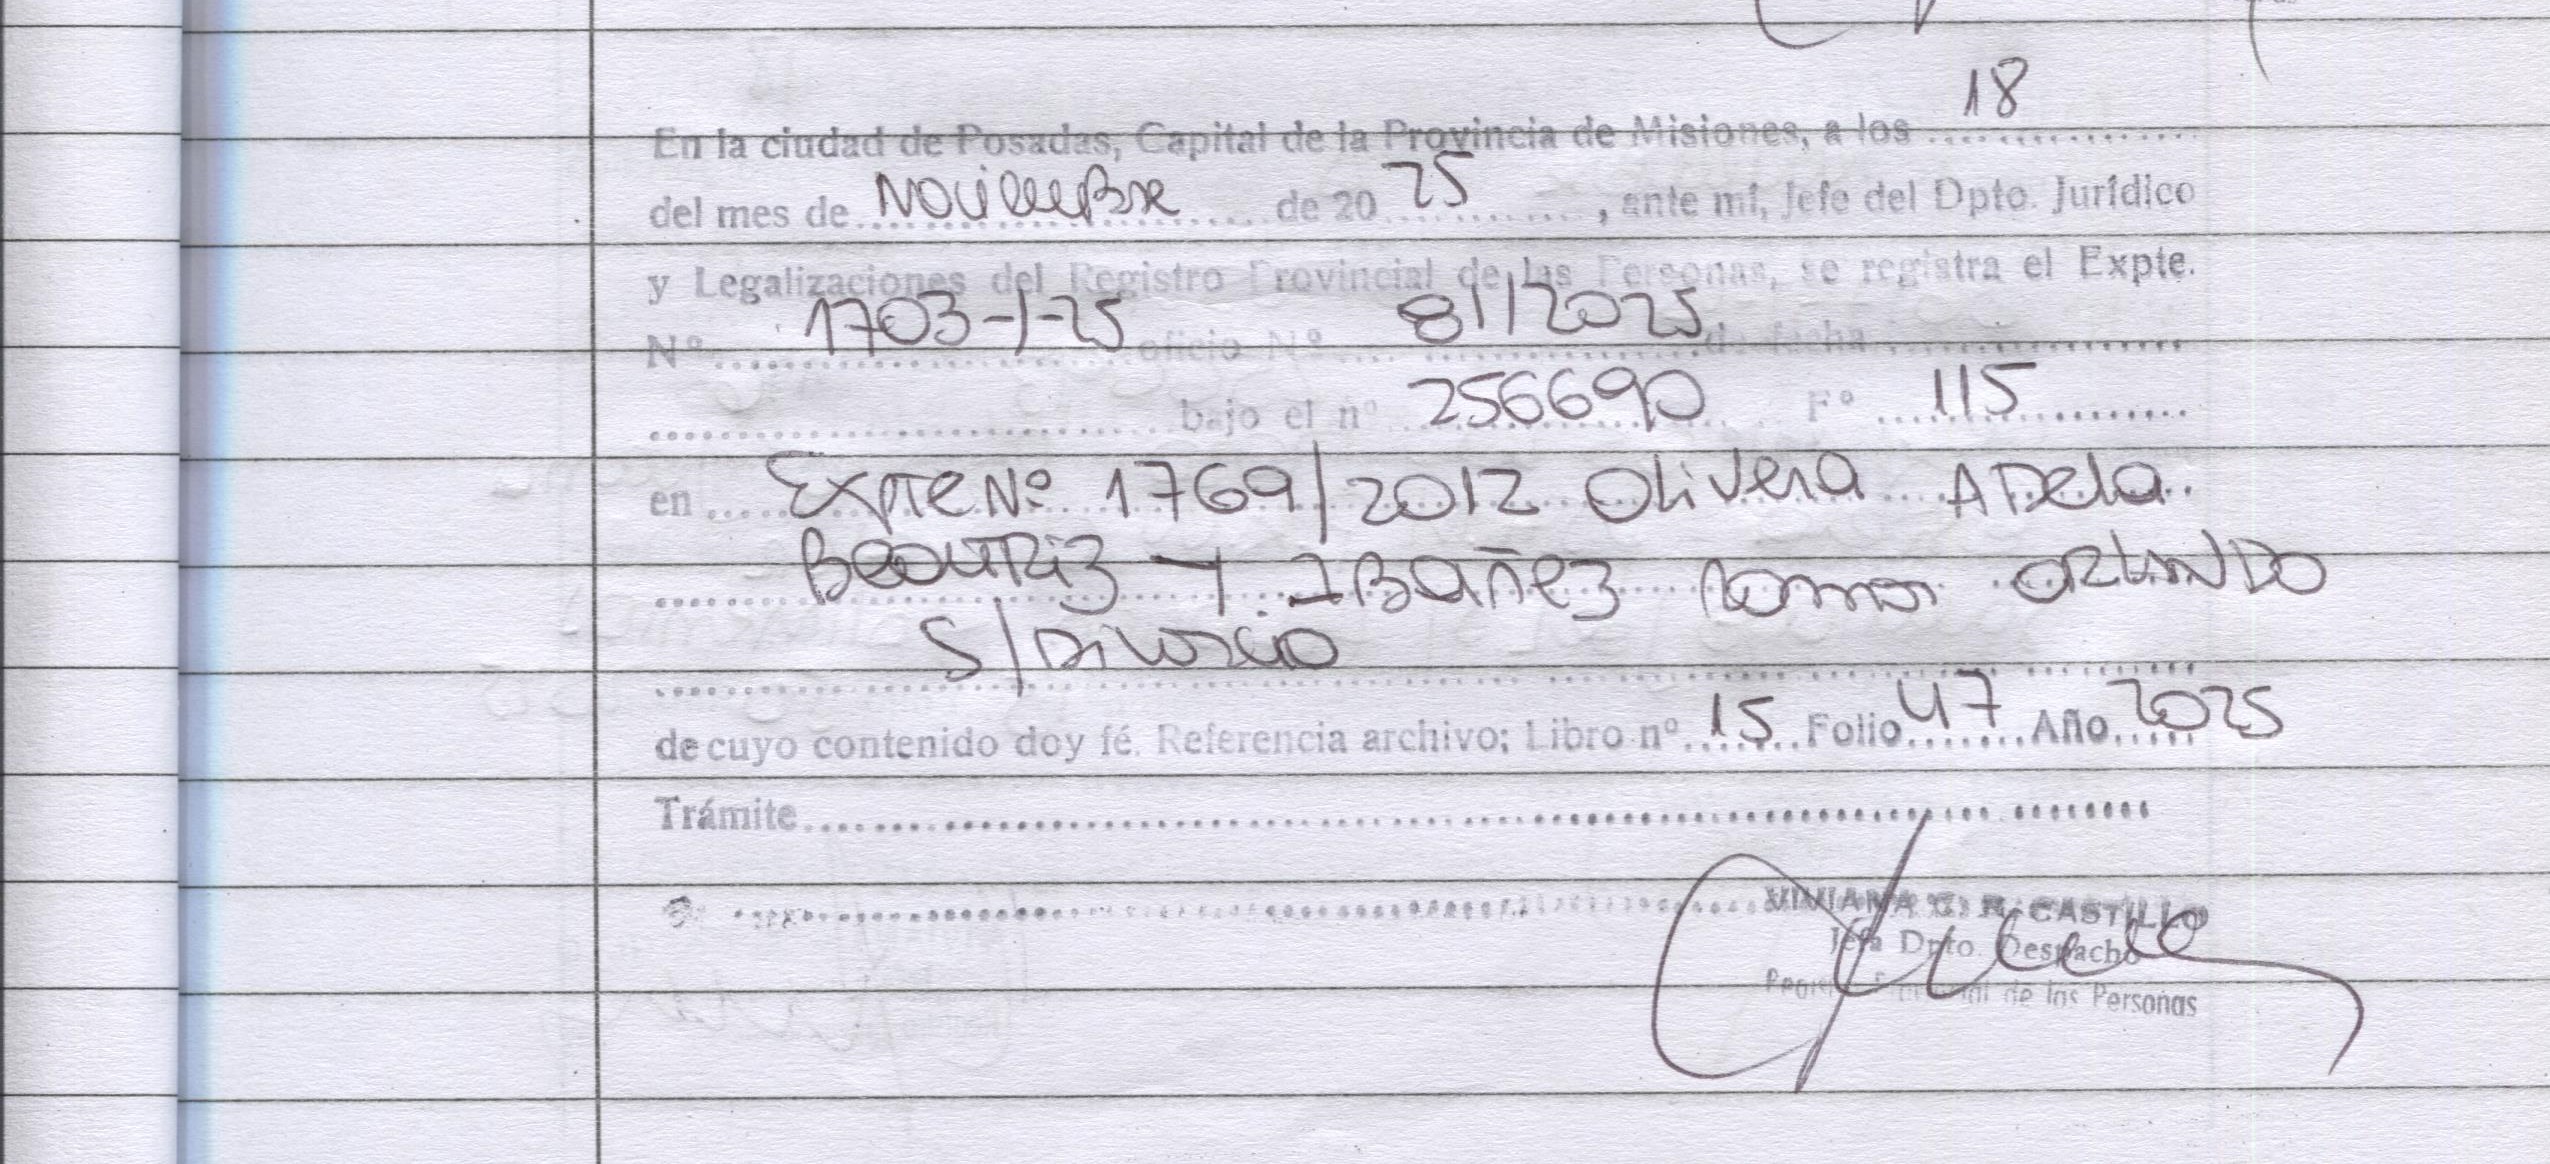 18
En la ciudad de Posadas, Capital de la Provincia de Misiones, a los ................
del mes de Noviembre de 20 25 , ante mí, Jefe del Dpto. Jurídico
y Legalizaciones del Registro Provincial de las Personas, se registra el Expte.
Nº 1703-1-25 oficio Nº 81/2025 de fecha ................
................ bajo el nº 256690 Fº 115
en Expte Nº 1769/2012 Olivera Adela
Beatriz Y Ibañez Ramon Orlando
S/ Divorcio
de cuyo contenido doy fé. Referencia archivo; Libro nº 15 Folio 47 Año 2025
Trámite ................
VIVIANA C. R. CASTILLO
Jefa Dpto. Despacho
de las Personas